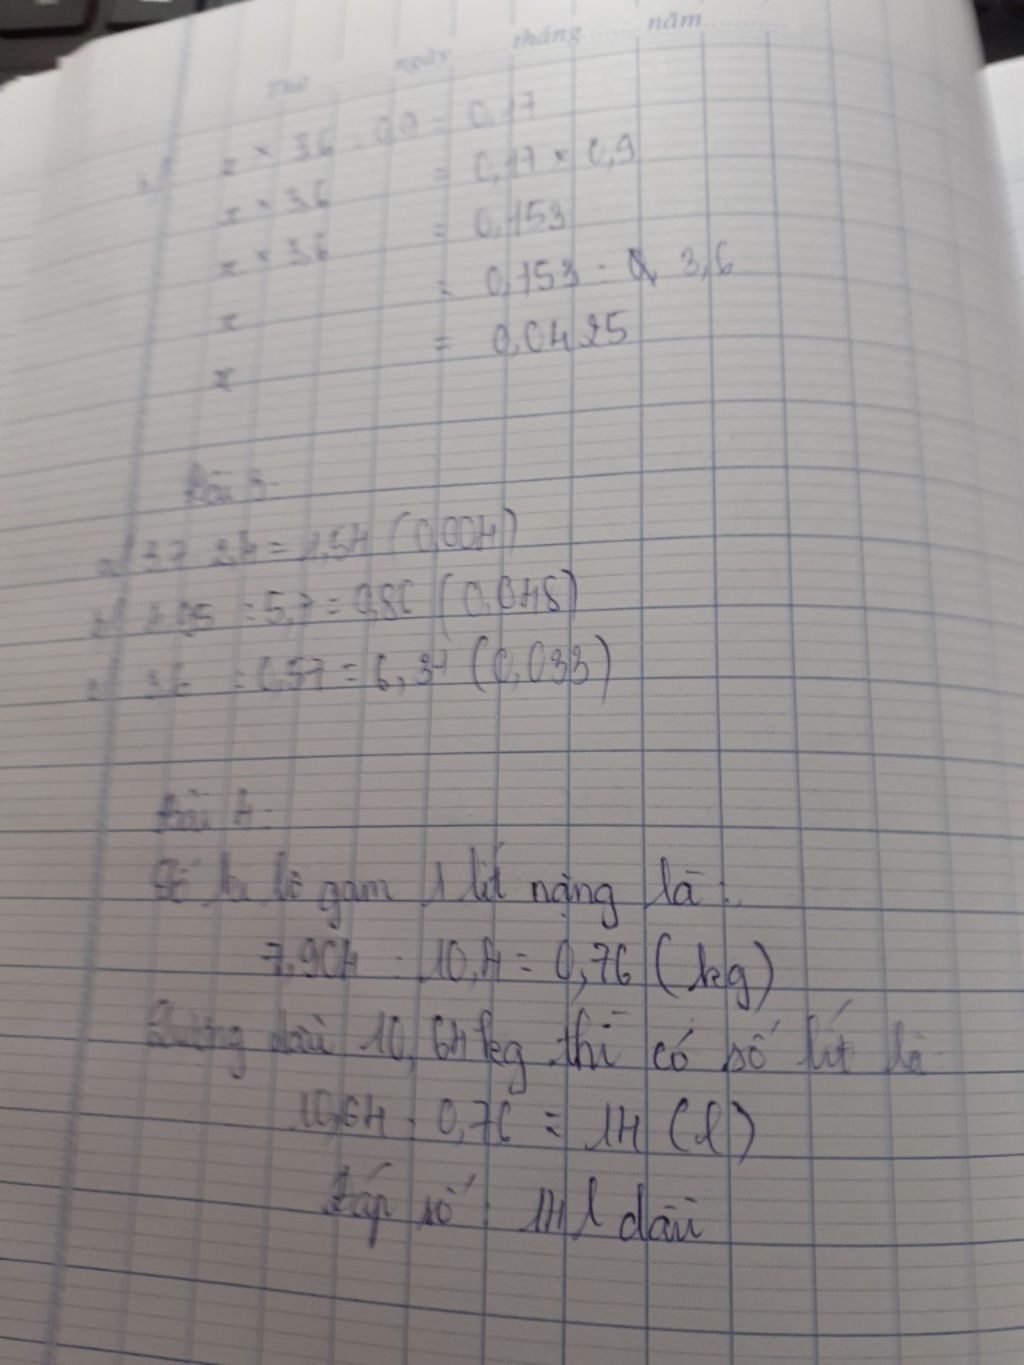 Thứ ngày tháng năm
x × 3,6 : 0,9 = 0,17
x × 3,6 = 0,17 × 0,9
x × 3,6 = 0,153
x = 0,153 : 3,6
x = 0,0425
Bài 3:
a) 37 : 24 = 1,54 (0,004)
: 5,7 = 0,86 (0,048)
c) 36 : 0,57 = 6,34 (0,033)
Bài 4:
Số ki lô gam 1 lít nặng là:
7,904 : 10,4 = 0,76 (kg)
Lượng dầu 10,64 kg thì có số lít là
10,64 : 0,76 = 14 (l)
Đáp số : 14 l dầu